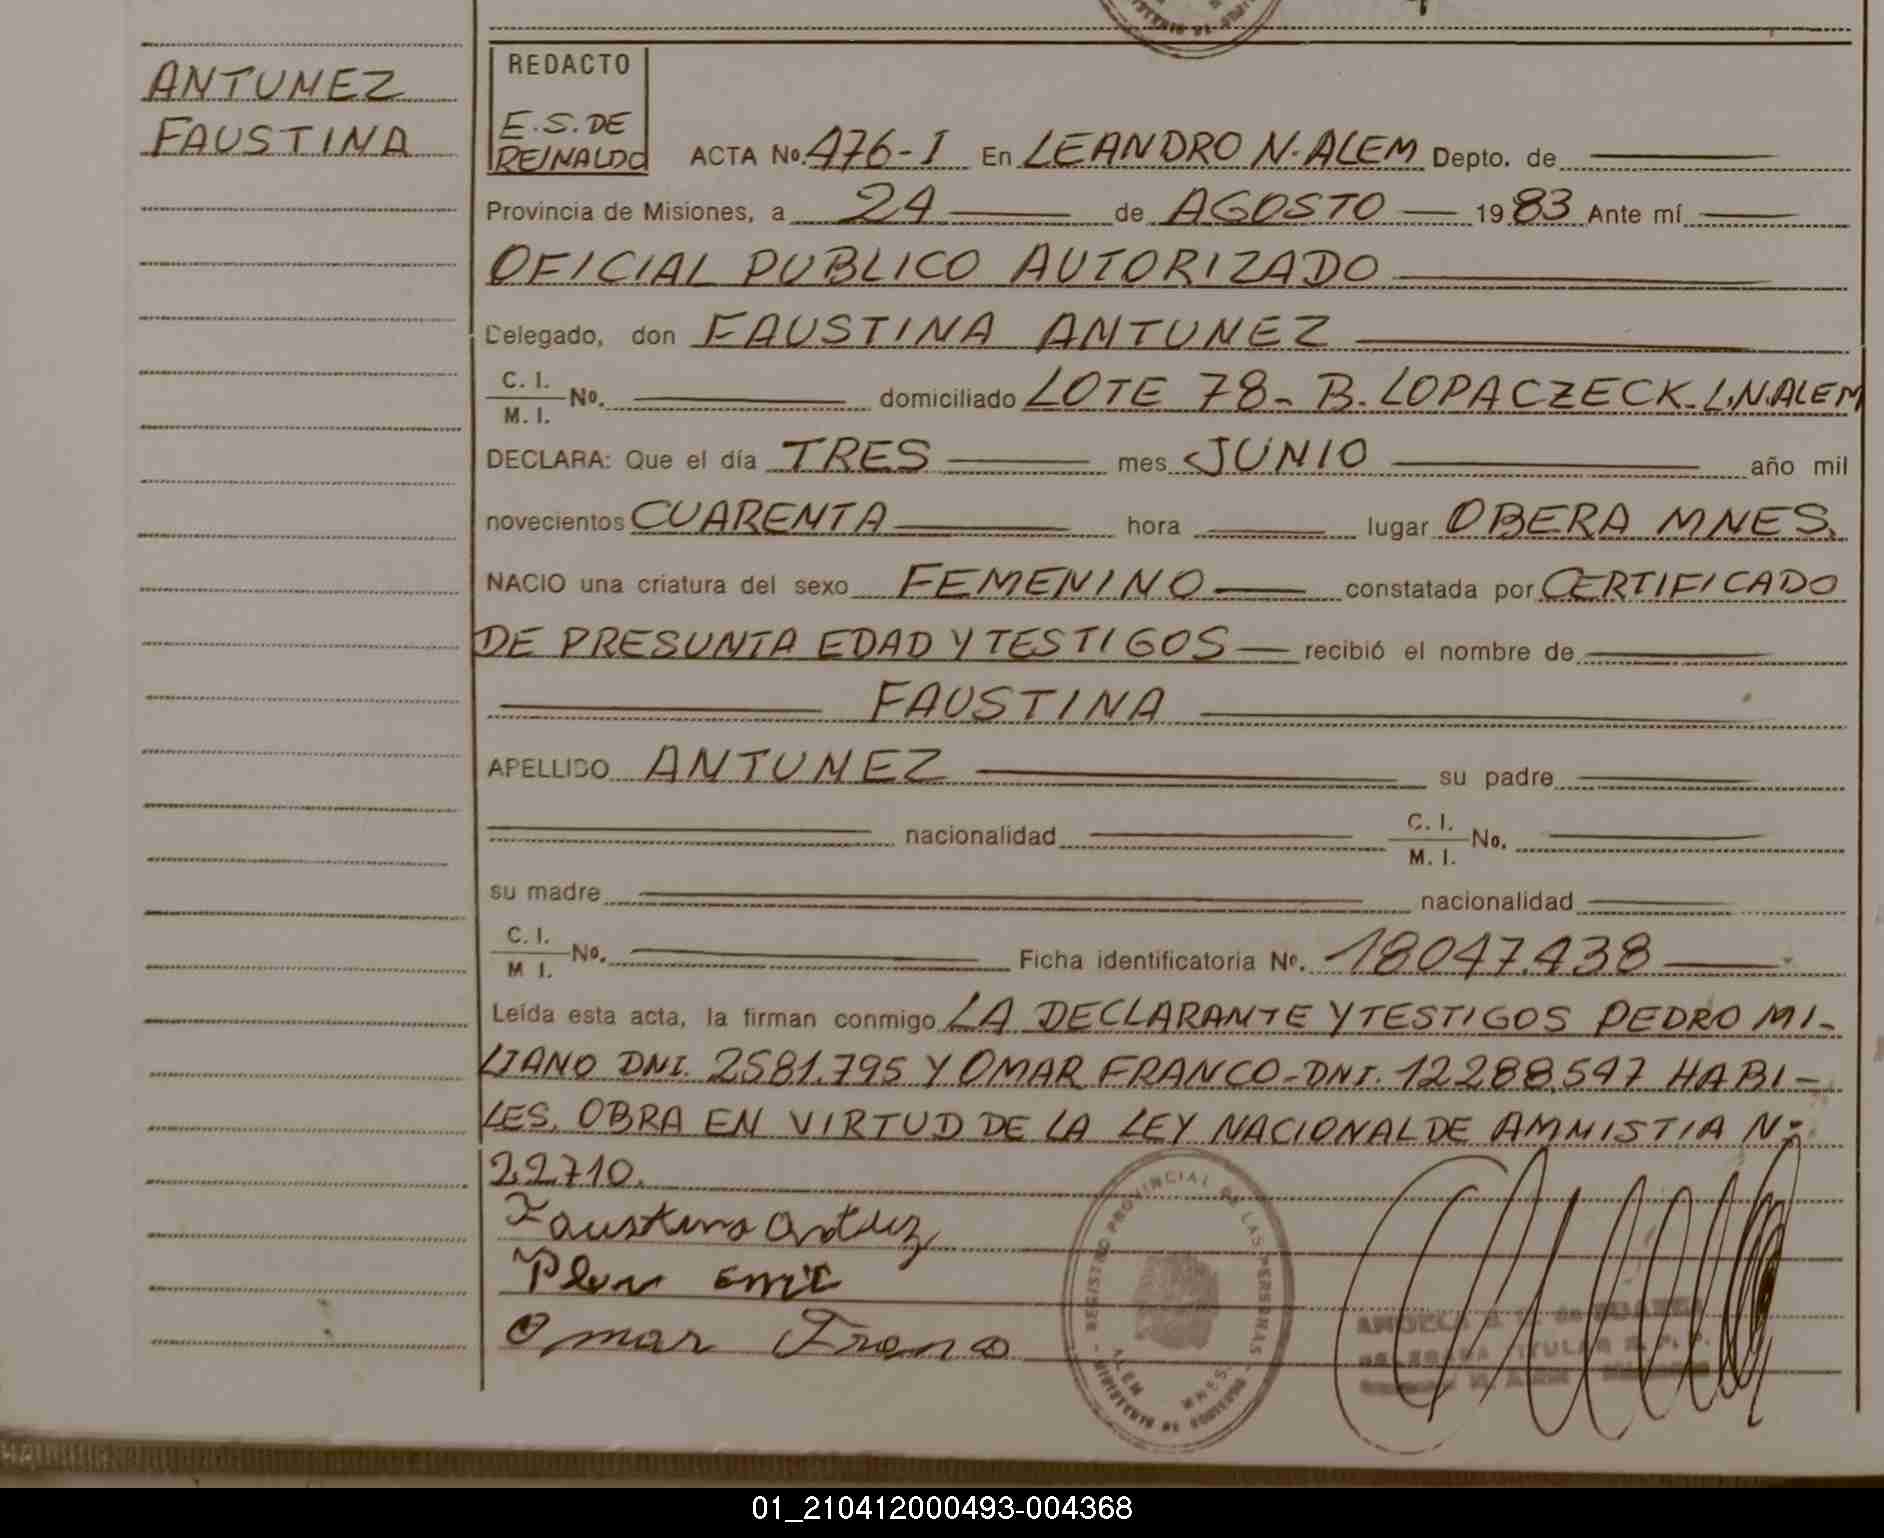 ANTUNEZ
FAUSTINA
REDACTO
E.S. DE
REINALDO
ACTA No. 476-I En LEANDRO N. ALEM Depto. de
Provincia de Misiones, a 24 de AGOSTO 1983 Ante mí
OFICIAL PUBLICO AUTORIZADO
Delegado, don FAUSTINA ANTUNEZ
C. I. / M. I. No. domiciliado LOTE 78- B. LOPACZECK- L.N.ALEM
DECLARA: Que el día TRES mes JUNIO año mil
novecientos CUARENTA hora lugar OBERA MNES.
NACIO una criatura del sexo FEMENINO constatada por CERTIFICADO
DE PRESUNTA EDAD Y TESTIGOS recibió el nombre de
FAUSTINA
APELLIDO ANTUNEZ su padre
nacionalidad C. I. / M. I. No.
su madre nacionalidad
C. I. / M I. No. Ficha identificatoria No. 18047.438
Leída esta acta, la firman conmigo LA DECLARANTE Y TESTIGOS PEDRO MI-
LIANO DNI. 2581.795 Y OMAR FRANCO-DNI. 12288.547 HABI-
LES. OBRA EN VIRTUD DE LA LEY NACIONAL DE AMMISTIA N:
22710.
Faustina
Omar Franco
REGISTRO PROVINCIAL DE LAS PERSONAS
ALEM MNES.
01_210412000493-004368